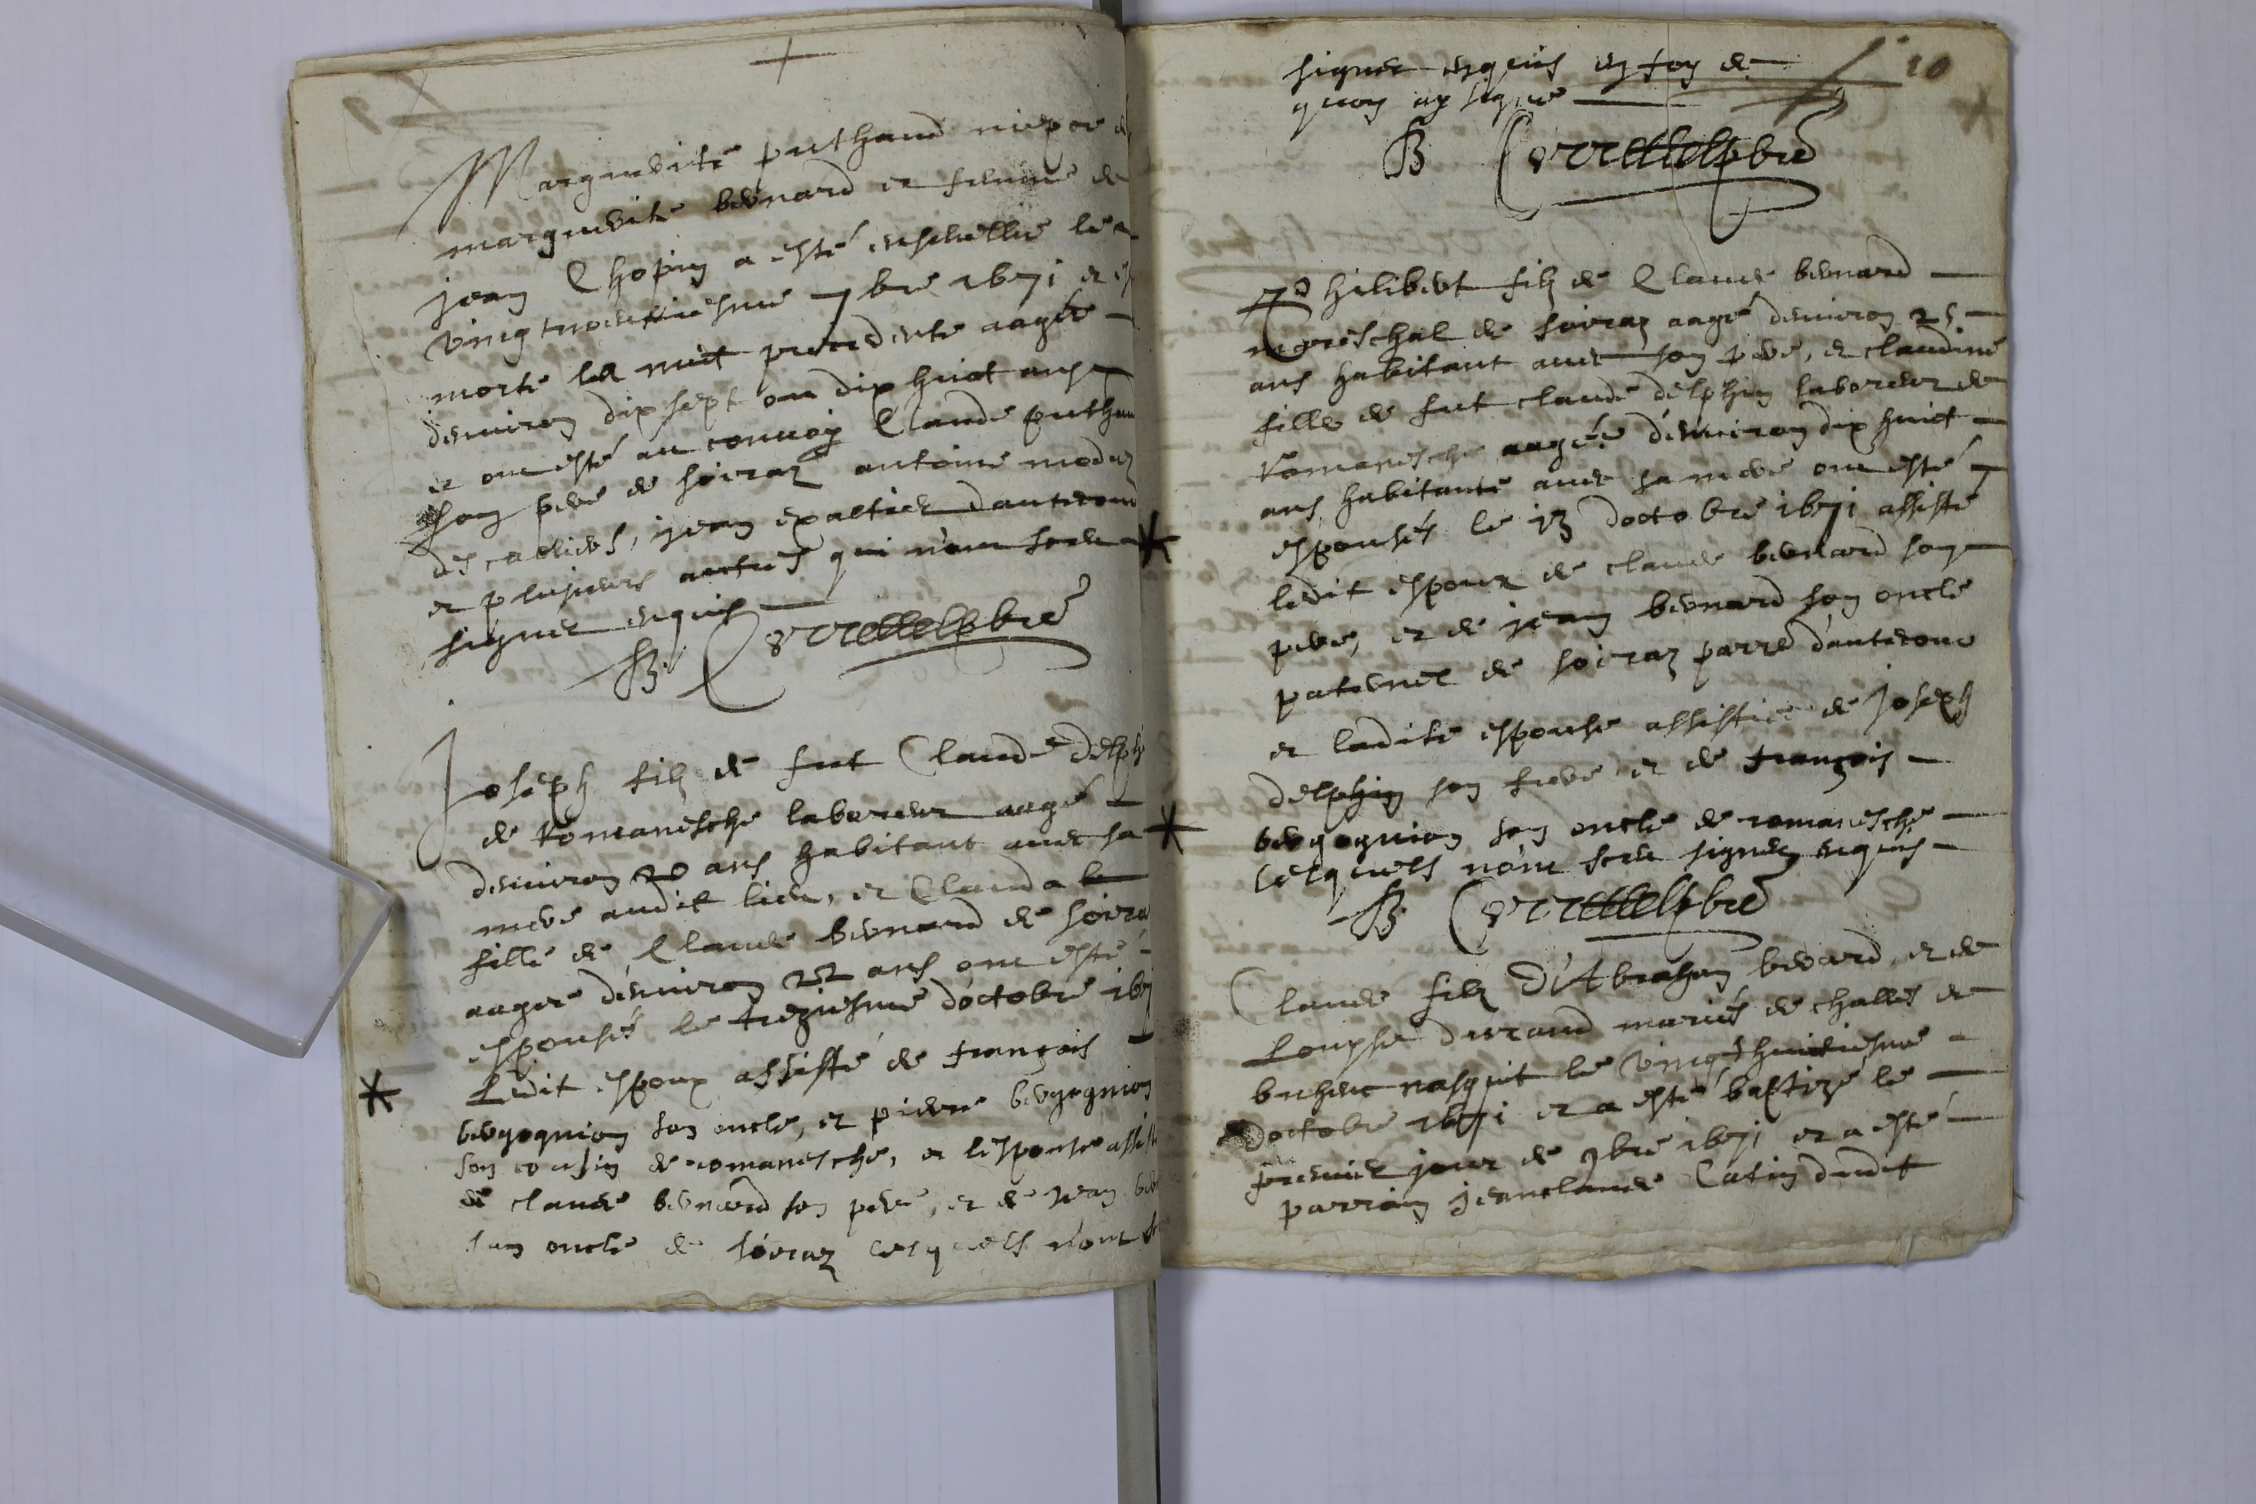 Marguerite puthaud niepce de
marguerite bernard et femme de
jean Chopin a esté enschellie le
vingtneusviesme 7bre 1671 et est
morte la nuit precedente aagée
denuiron dix sept ou dix huict ans
et ont esté au conuoy Claude puthau
son pere de soiraz antoine
des cablies, jean dauteconu
et plusieurs autres qui n'ont sceu
signer enquis
B. Cerrettelpbre
Joseph filz de fut Claude delph
de Romanesche laboreur aagé
denuiron 20 ans habitant auec sa
mere audit lieu, et Clauda
fille de Claude bernard de soira
aagee d'enuiron 22 ans ont esté
espousés le treziesme d'octobre 167
Ledit espoux assisté de françois
bergognion son oncle, et pierre bergognion
son cousin de romanesche, et l'espouse assist
de claude bernard son pere, et de jean ber
son oncle de soiraz lesquels n'ont
10
signer enquis en foy de
quoy ay signé
B Cerrettelpbre
Philibert filz de Claude bernard
mareschal de soiraz aagé denuiron 25
ans habitant auec son pere, et claudine
fille de fut claude delphin laboreur de
Romanesche aagée d'enuiron dix huict
ans habitante auec sa mere ont esté
espousés le 13 doctobre 1671 assisté
ledit espoux de claude bernard son
pere, et de jean bernard son oncle
paternel de soiraz parre d'anteconu
et ladite espouse assistée de Joseph
delphin son frere et de françois
bergognion son oncle de romanesche
lesquels n'ont sceu signer enquis
B. Cerrettelpbre
Claude filz D'Abraham berard, et de
Louyse durand mariés de challes de
buhenc nasquit le vingthuictiesme
doctobre 1671 et a esté baptizé le
premier jour de 9bre 1671 et a esté
parrain jeanclaude Catin dudit